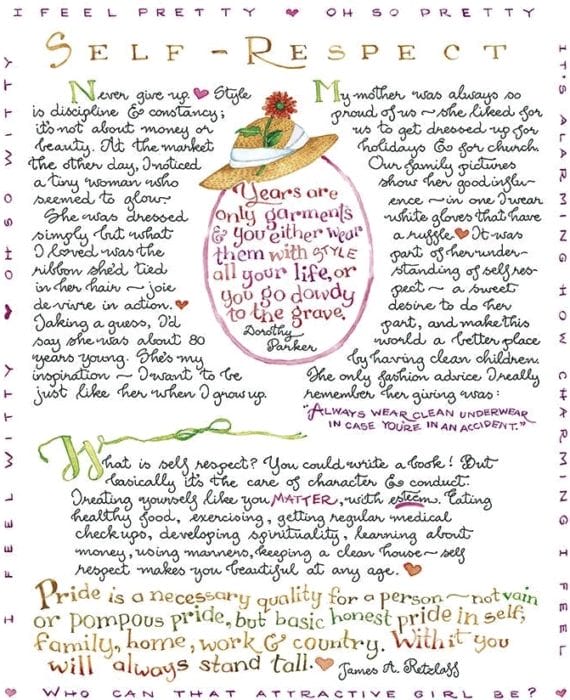 I FEEL PRETTY ♥ OH SO PRETTY
SELF-RESPECT
Never give up. ♥ Style
is discipline & constancy;
it's not about money or
beauty. At the market
the other day, I noticed
a tiny woman who
seemed to glow.
She was dressed
simply but what
I loved was the
ribbon she'd tied
in her hair ~ joie
de vivre in action. ♥
Taking a guess, I'd
say she was about 80
years young. She's my
inspiration ~ I want to be
just like her when I grow up.
Years are
only garments
& you either wear
them with STYLE
all your life, or
you go dowdy
to the grave.
Dorothy
Parker
My mother was always so
proud of us ~ she liked for
us to get dressed up for
holidays & for church.
Our family pictures
show her good influ-
ence ~ in one I wear
white gloves that have
a ruffle. ♥ It was
part of her under-
standing of self res-
pect ~ a sweet
desire to do her
part, and make this
world a better place
by having clean children.
The only fashion advice I really
remember her giving was:
"ALWAYS WEAR CLEAN UNDERWEAR
IN CASE YOU'RE IN AN ACCIDENT."
What is self respect? You could write a book! But
basically it's the care of character & conduct:
Treating yourself like you MATTER, with esteem. Eating
healthy food, exercising, getting regular medical
checkups, developing spirituality, learning about
money, using manners, keeping a clean house ~ self
respect makes you beautiful at any age. ♥
Pride is a necessary quality for a person ~ not vain
or pompous pride, but basic honest pride in self,
family, home, work & country. With it you
will always stand tall. ♥ James A. Retzlaff
IT'S ALARMING HOW CHARMING I FEEL
♥ WHO CAN THAT ATTRACTIVE GIRL BE? ♥
I FEEL WITTY ♥ OH SO WITTY